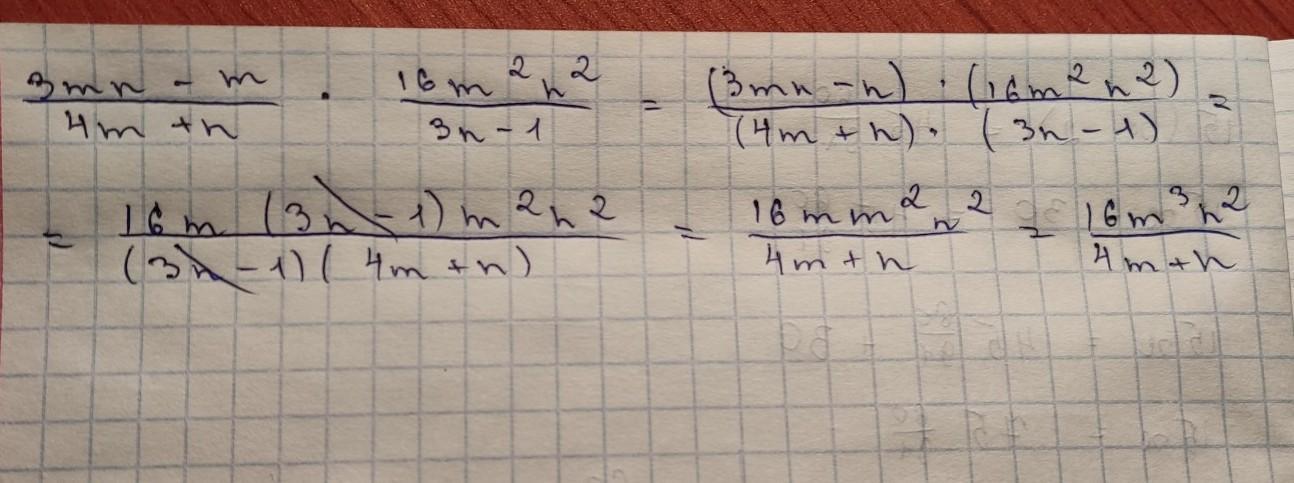 (3mn - m)/(4m + n) · (16m²n²)/(3n - 1) = ((3mn - n) · (16m²n²))/((4m + n) · (3n - 1)) =
= (16m (3n - 1) m²n²)/((3n - 1)(4m + n)) = (16mm²n²)/(4m + n) = (16m³n²)/(4m + n)